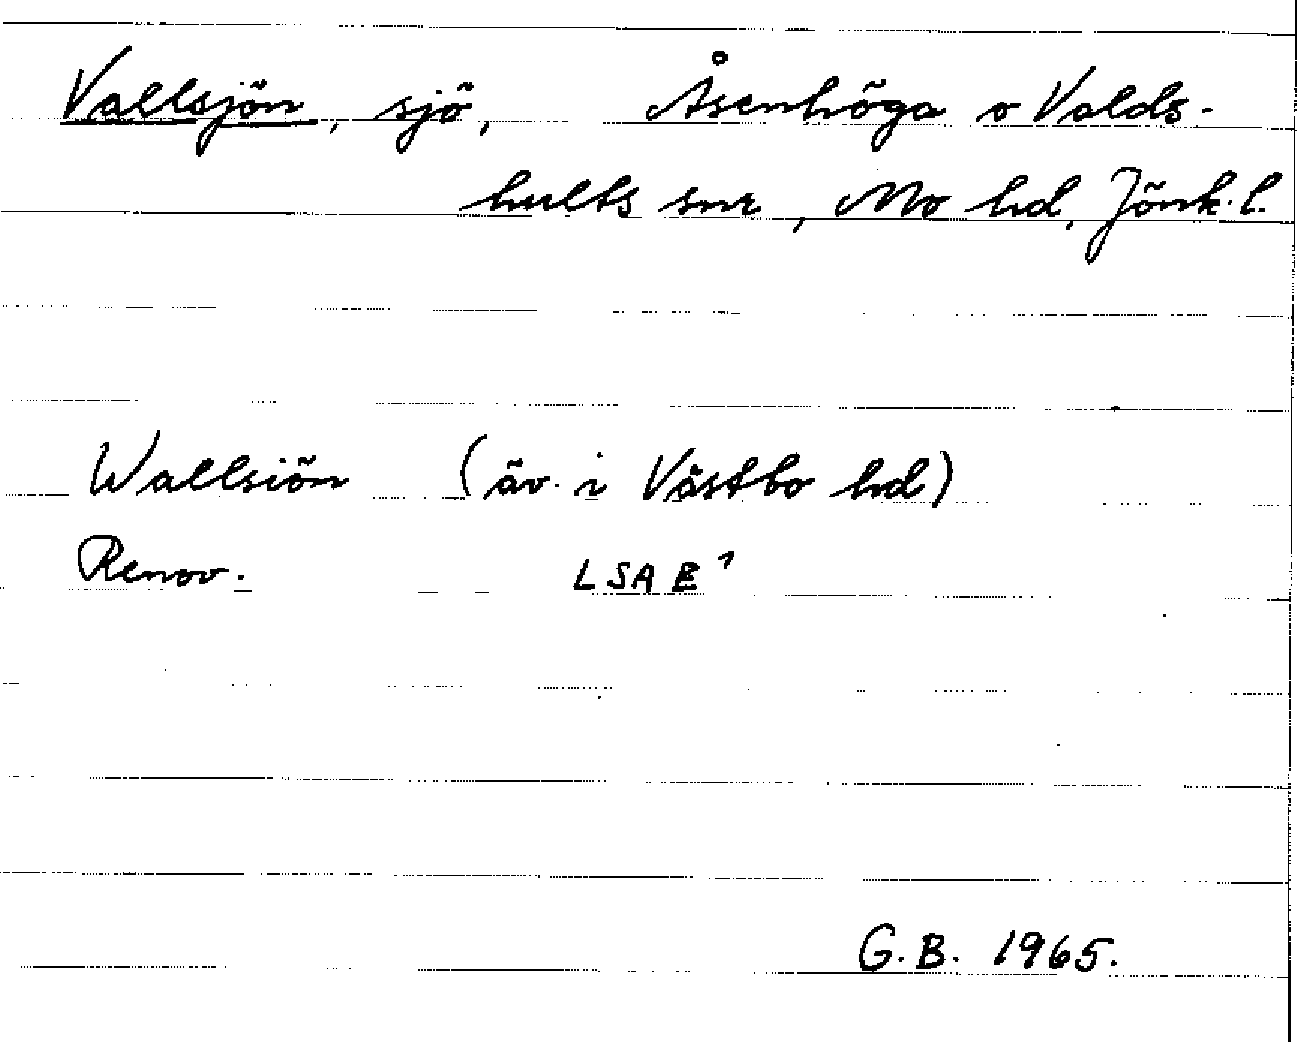 Vallsjön, sjö, Åsenhöga o Valds-
hults snr, Mo hd, Jönk.l.
Wallsiön (äv. i Västbo hd)
Renov. LSA E¹
G.B. 1965.